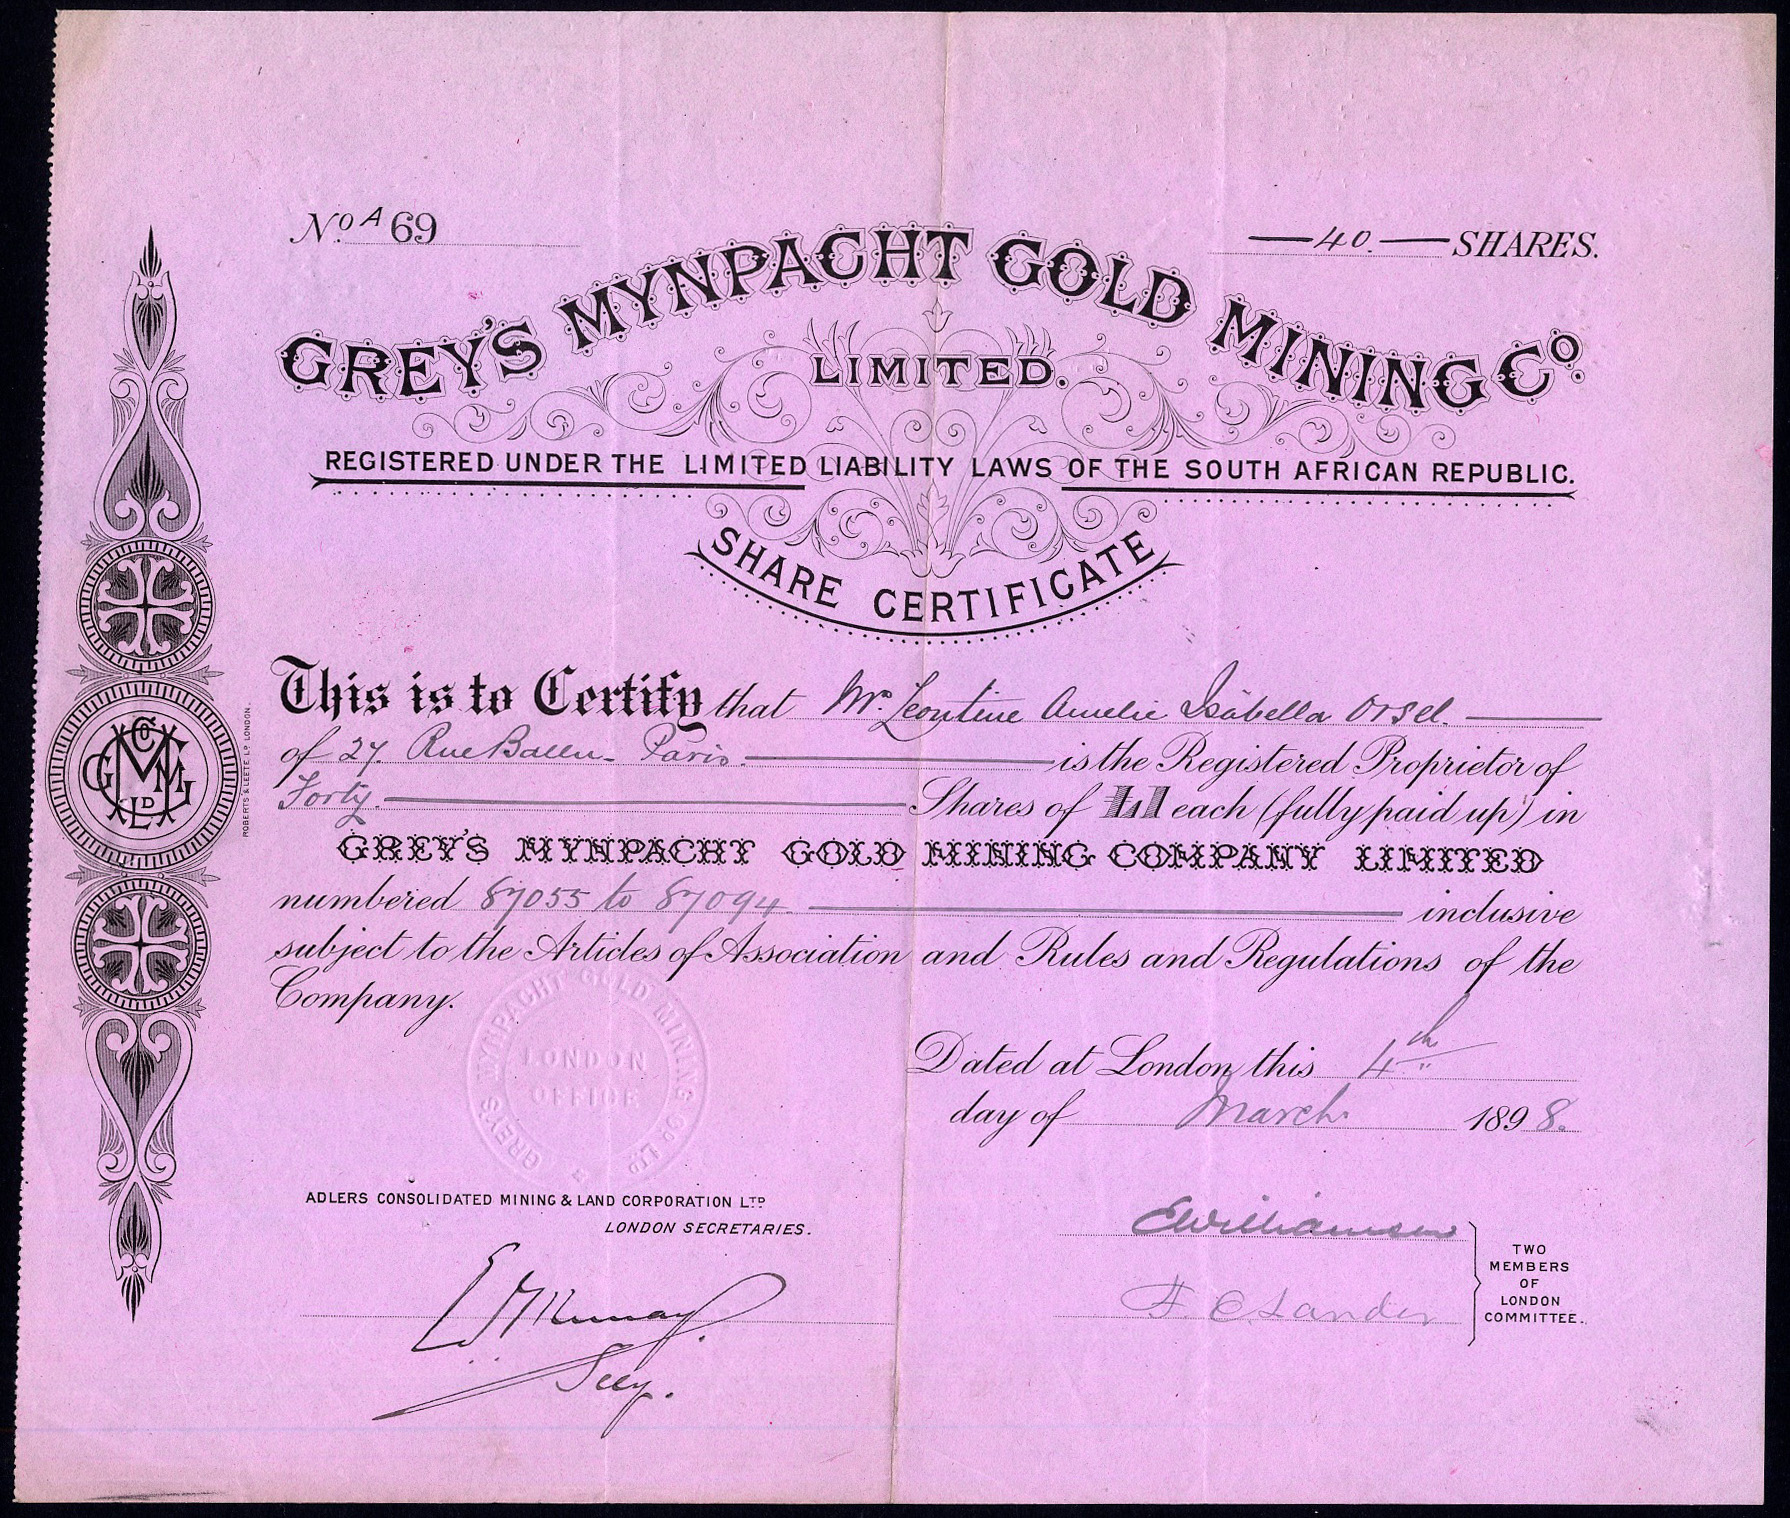 No. A 69
40. SHARES.
GREY'S MYNPACHT GOLD MINING Co.
LIMITED.
REGISTERED UNDER THE LIMITED LIABILITY LAWS OF THE SOUTH AFRICAN REPUBLIC.
SHARE CERTIFICATE
This is to Certify that Leontine Amelie Isabella Orsel.
of 27. Rue Ballu. Paris. is the Registered Proprietor of
Forty. Shares of £1 each (fully paid up) in
GREY'S MYNPACHT GOLD MINING COMPANY LIMITED
numbered 87055 to 87094. inclusive
subject to the Articles of Association and Rules and Regulations of the
Company.
GREY'S MYNPACHT GOLD MINING Co LTD
LONDON
OFFICE
Dated at London this 4th
day of March 1898.
ADLERS CONSOLIDATED MINING & LAND CORPORATION LTD
LONDON SECRETARIES.
Secy.
E Williamson
F. C. Lander
TWO
MEMBERS
OF
LONDON
COMMITTEE.
G M G M Co LD
ROBERTS & LEETE, LD LONDON.